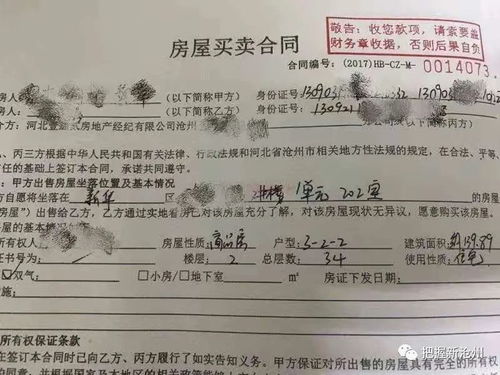 敬告:收您款项,请索要盖
财务章收据,否则后果自负
房屋买卖合同
合同编号:(2017)HB-CZ-M-0014073
房人 (以下简称甲方) 身份证号:
房人 (以下简称乙方) 身份证号:130921
介方:河北 房地产经纪有限公司沧州 (以下简称丙方)
、丙三方根据中华人民共和国有关法律、行政法规和河北省沧州市相关地方性法规的规定,在合法、平等、
任的基础上签订本合同,承诺共同遵守。
、甲方出售房屋坐落位置及基本情况
方自愿将坐落在 新华 区 1单元 202室
房屋”)出售给乙方,乙方通过实地看房已对该房屋充分了解,对该房屋现状无异议,愿意购买该房屋。
屋的基本情况
所有权人 房屋性质:商品房 户型:3-2-2 建筑面积:约159.89
证书号为: 楼层:2 总层数:34 使用性质:住宅
☑双气 □小房/□地下室 ㎡ 房证下发日期:
施:
所有权保证条款
在签订本合同时已向乙方、丙方履行了如实告知义务。甲方保证对所出售的房屋具有完全的所有权
把握新沧州